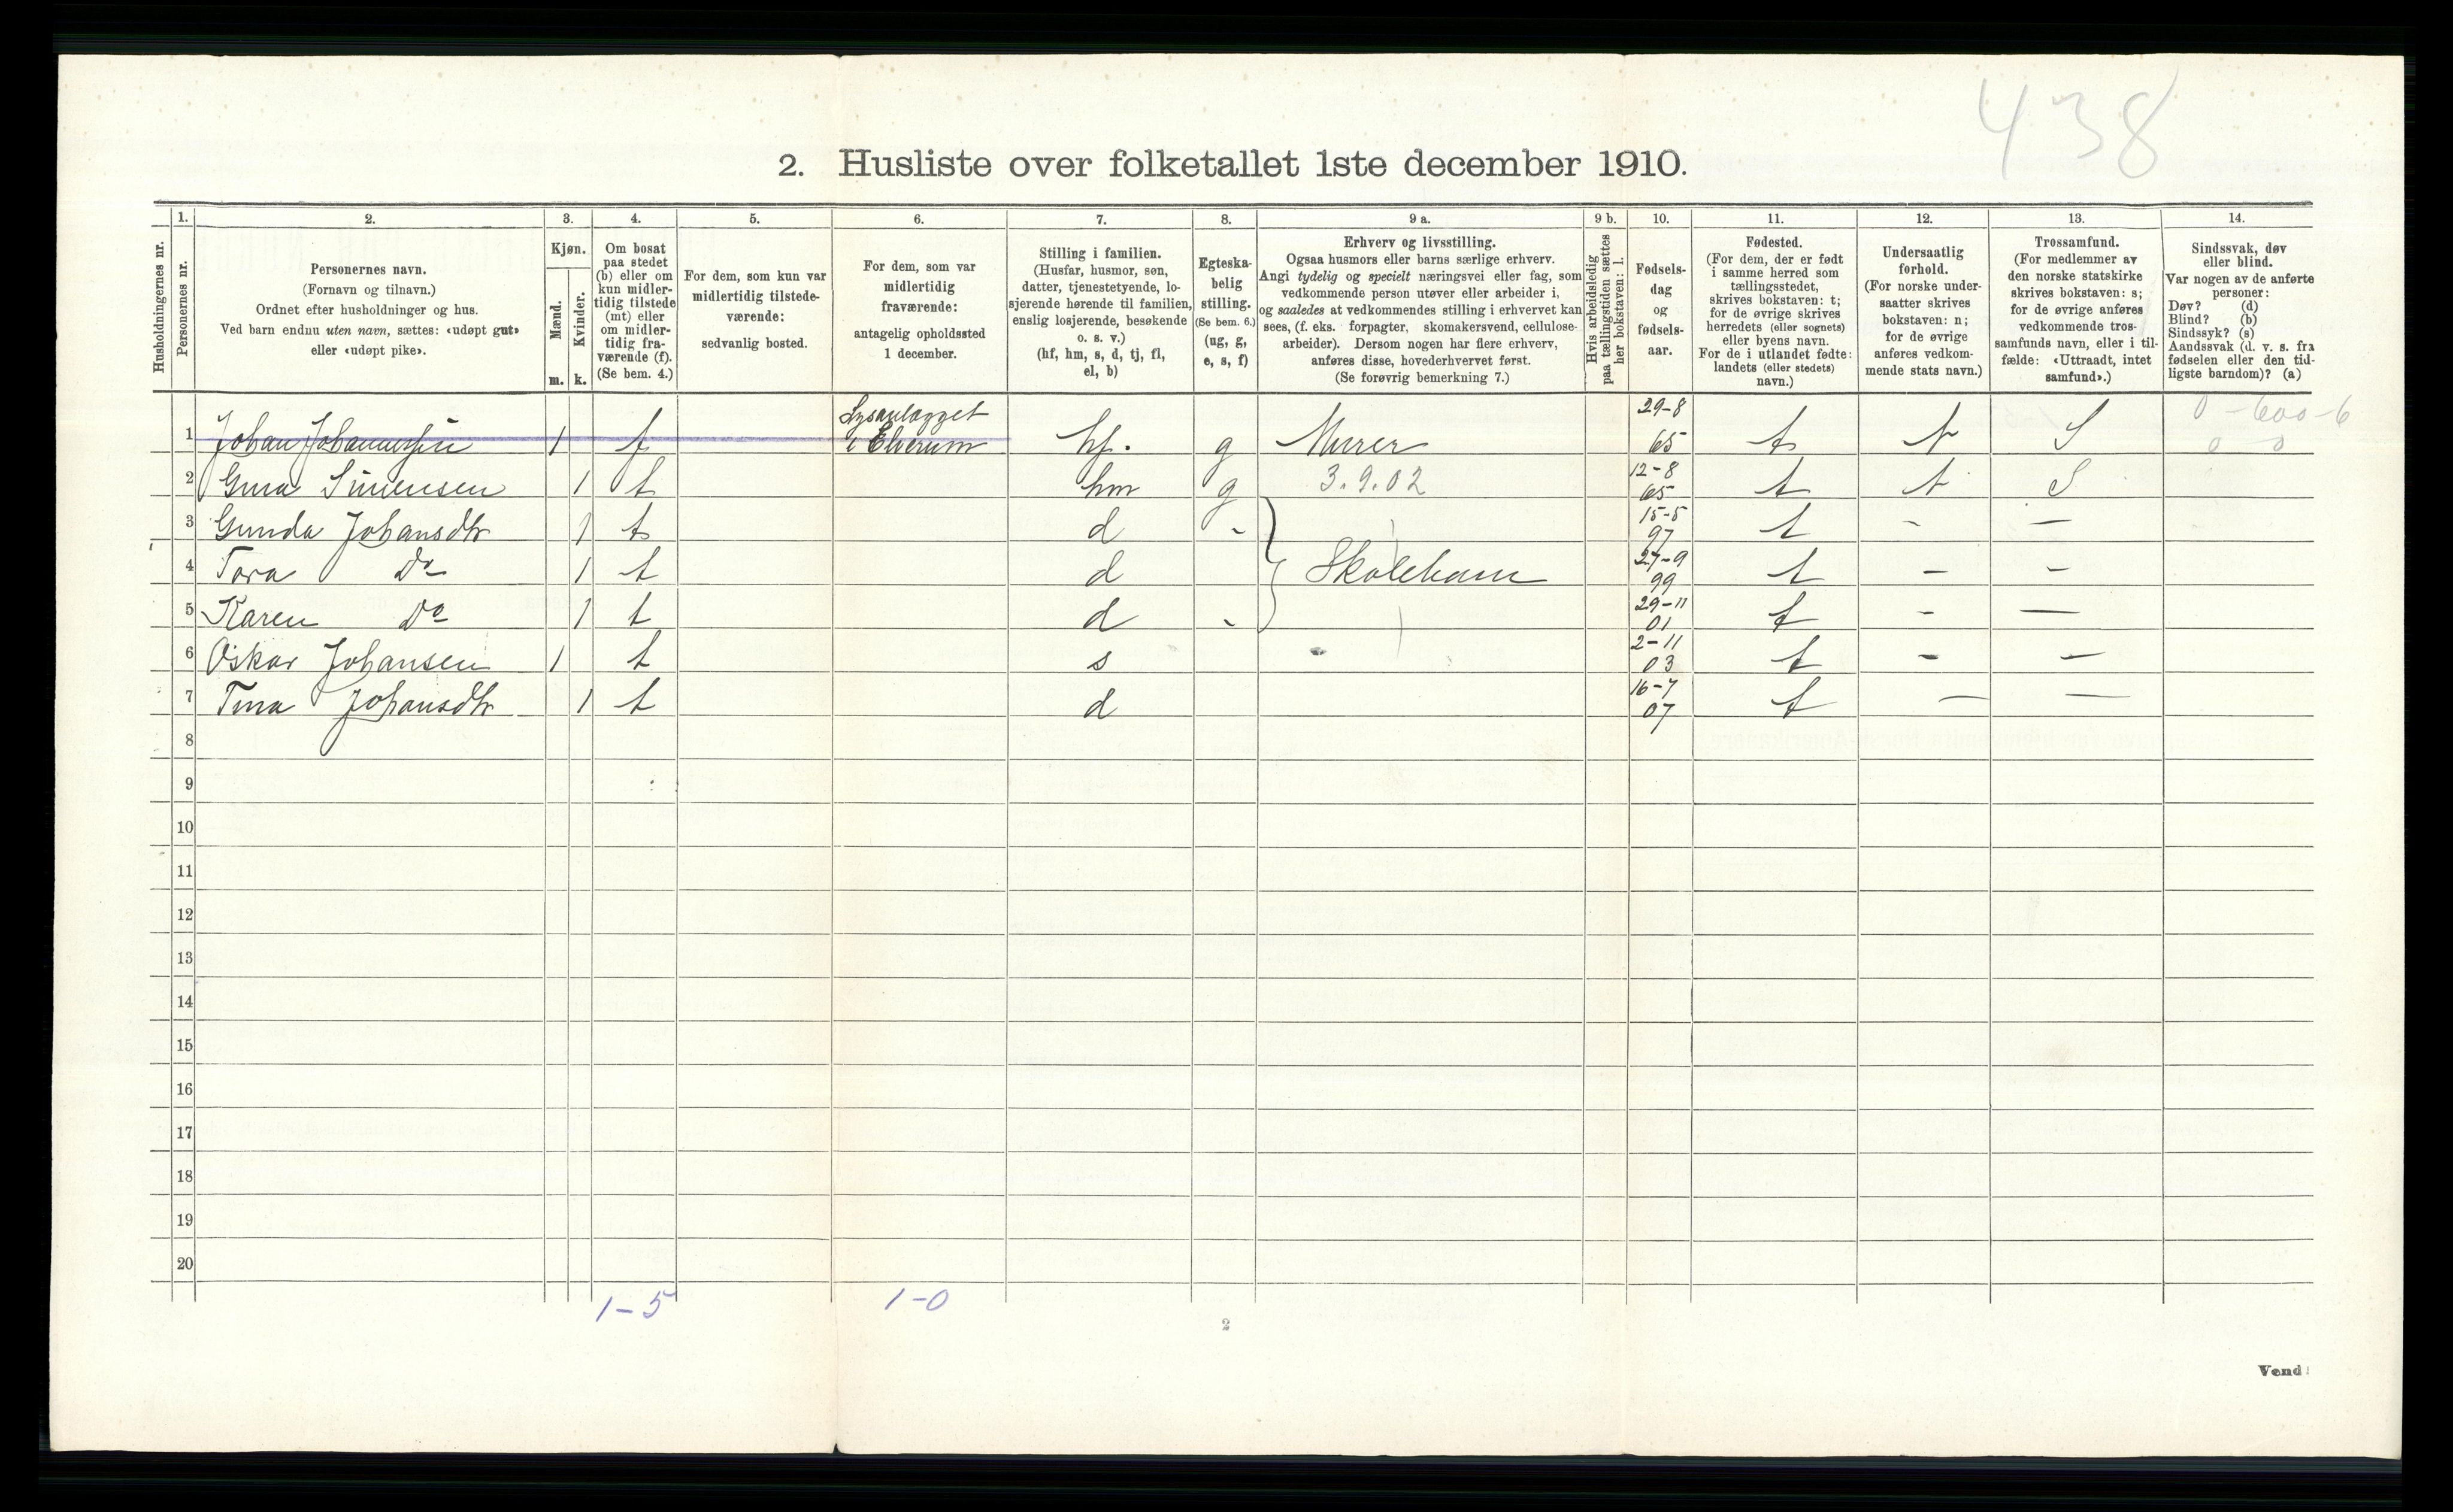 438
2. Husliste over folketallet 1ste december 1910.
Husholdningernes nr.
1.
Personernes nr.
2.
Personernes navn.
(Fornavn og tilnavn.)
Ordnet efter husholdninger og hus.
Ved barn endnu uten navn, sættes: «udøpt gut»
eller «udøpt pike».
3.
Kjøn.
Mænd.
Kvinder.
m. k.
4.
Om bosat
paa stedet
(b) eller om
kun midler-
tidig tilstede
(mt) eller
om midler-
tidig fra-
værende (f).
(Se bem. 4.)
5.
For dem, som kun var
midlertidig tilstede-
værende:
sedvanlig bosted.
6.
For dem, som var
midlertidig
fraværende:
antagelig opholdssted
1 december.
7.
Stilling i familien.
(Husfar, husmor, søn,
datter, tjenestetyende, lo-
sjerende hørende til familien,
enslig losjerende, besøkende
o. s. v.)
(hf, hm, s, d, tj, fl,
el, b)
8.
Egteska-
belig
stilling.
(Se bem. 6.)
(ug, g,
e, s, f)
9 a.
Erhverv og livsstilling.
Ogsaa husmors eller barns særlige erhverv.
Angi tydelig og specielt næringsvei eller fag, som
vedkommende person utøver eller arbeider i,
og saaledes at vedkommendes stilling i erhvervet kan
sees, (f. eks. forpagter, skomakersvend, cellulose-
arbeider). Dersom nogen har flere erhverv,
anføres disse, hovederhvervet først.
(Se forøvrig bemerkning 7.)
9 b.
Hvis arbeidsledig
paa tællingstiden sættes
her bokstaven: l.
10.
Fødsels-
dag
og
fødsels-
aar.
11.
Fødested.
(For dem, der er født
i samme herred som
tællingsstedet,
skrives bokstaven: t;
for de øvrige skrives
herredets (eller sognets)
eller byens navn.
For de i utlandet fødte:
landets (eller stedets)
navn.)
12.
Undersaatlig
forhold.
(For norske under-
saatter skrives
bokstaven: n;
for de øvrige
anføres vedkom-
mende stats navn.)
13.
Trossamfund.
(For medlemmer av
den norske statskirke
skrives bokstaven: s;
for de øvrige anføres
vedkommende tros-
samfunds navn, eller i til-
fælde: «Uttraadt, intet
samfund».)
14.
Sindssvak, døv
eller blind.
Var nogen av de anførte
personer:
Døv? (d)
Blind? (b)
Sindssyk? (s)
Aandssvak (d. v. s. fra
fødselen eller den tid-
ligste barndom)? (a)
1 Johan Johannessen 1 f Lysanlægget i Elverum hf. g Murer 29-8 65 t n S 0-600-6
0 0
2 Gina Simensen 1 t hm g 3.9.02 12-8 65 t n S
3 Gunda Johansdtr 1 t d - 15-5 97 t - -
4 Tora Do 1 t d Skolebarn 27-9 99 t - -
5 Karen Do 1 t d - 29-11 01 t - -
6 Oskar Johansen 1 t s 2-11 03 t - -
7 Tina Johansdtr 1 t d 16-7 07 t - -
8
9
10
11
12
13
14
15
16
17
18
19
20
1-5 1-0
2
Vend